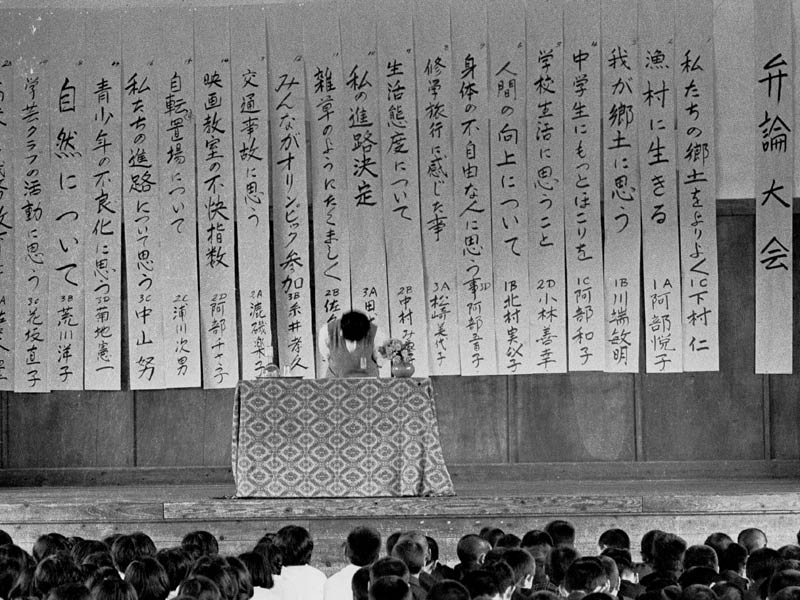 弁論大会
私たちの郷土をよりよく 1C 下村 仁
漁村に生きる 1A 阿部悦子
我が郷土に思う 1B 川端敏明
中学生にもっとほこりを 1C 阿部和子
学校生活に思うこと 2D 小林善幸
人間の向上について 1B 北村実
身体の不自由な人に思う事 3D 阿部
修学旅行に感じた事 3A 松崎美代子
生活態度について 2B 中村み
私の進路決定 3A 田
雑草のようにたくましく 2B 佐
みんながオリンピック参加 3B 糸井孝久
交通事故に思う 2A 漉磯楽子
映画教室の不快指数 2D 阿部チヤ子
自転置場について 2C 浦川次男
私たちの進路について思う 3C 中山 努
青少年の不良化に思う 3D 菊地憲一
自然について 3B 荒川洋子
学芸クラブの活動に思う 3C 花坂直子